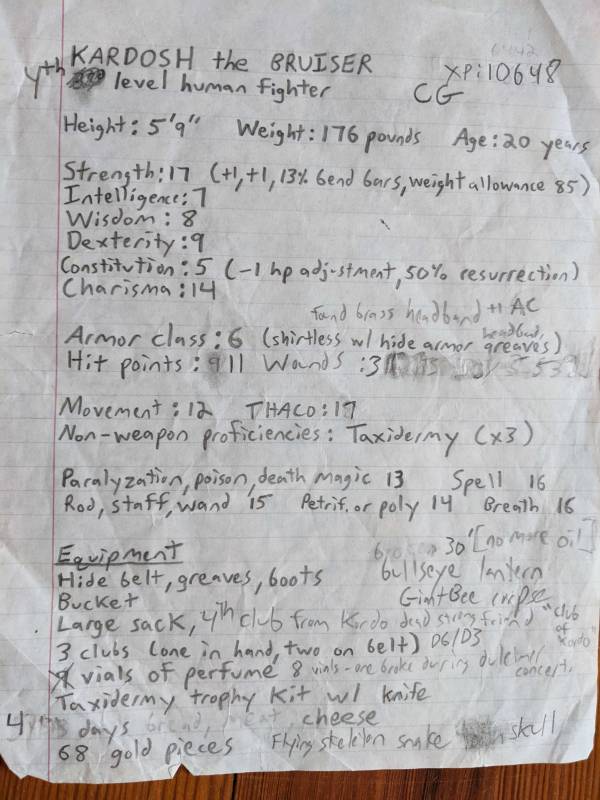 KARDOSH the BRUISER
XP: 10648
4th level human fighter
CG
Height: 5'9" Weight: 176 pounds Age: 20 years
Strength: 17 (+1, +1, 13% bend bars, weight allowance 85)
Intelligence: 7
Wisdom: 8
Dexterity: 9
Constitution: 5 (-1 hp adj-stment, 50% resurrection)
Charisma: 14
fand brass headband +1 AC
Armor class: 6 (shirtless w/ hide armor greaves)
headband,
Hit points: 11 Wounds: 3
Movement: 12 THACO: 17
Non-weapon proficiencies: Taxidermy (x3)
Paralyzation, poison, death magic 13 Spell 16
Rod, staff, wand 15 Petrif. or poly 14 Breath 16
Equipment
30' [no more oil]
Hide belt, greaves, boots bullseye lantern
Bucket Giant Bee corpse
Large sack, 4th club from Kordo dead strong friend "club of Kordo"
3 clubs (one in hand, two on belt) D6/D3
vials of perfume 8 vials - one broke during dulcimer concert.
Taxidermy trophy kit w/ knife
4 days cheese
68 gold pieces Flying skeleton snake skull